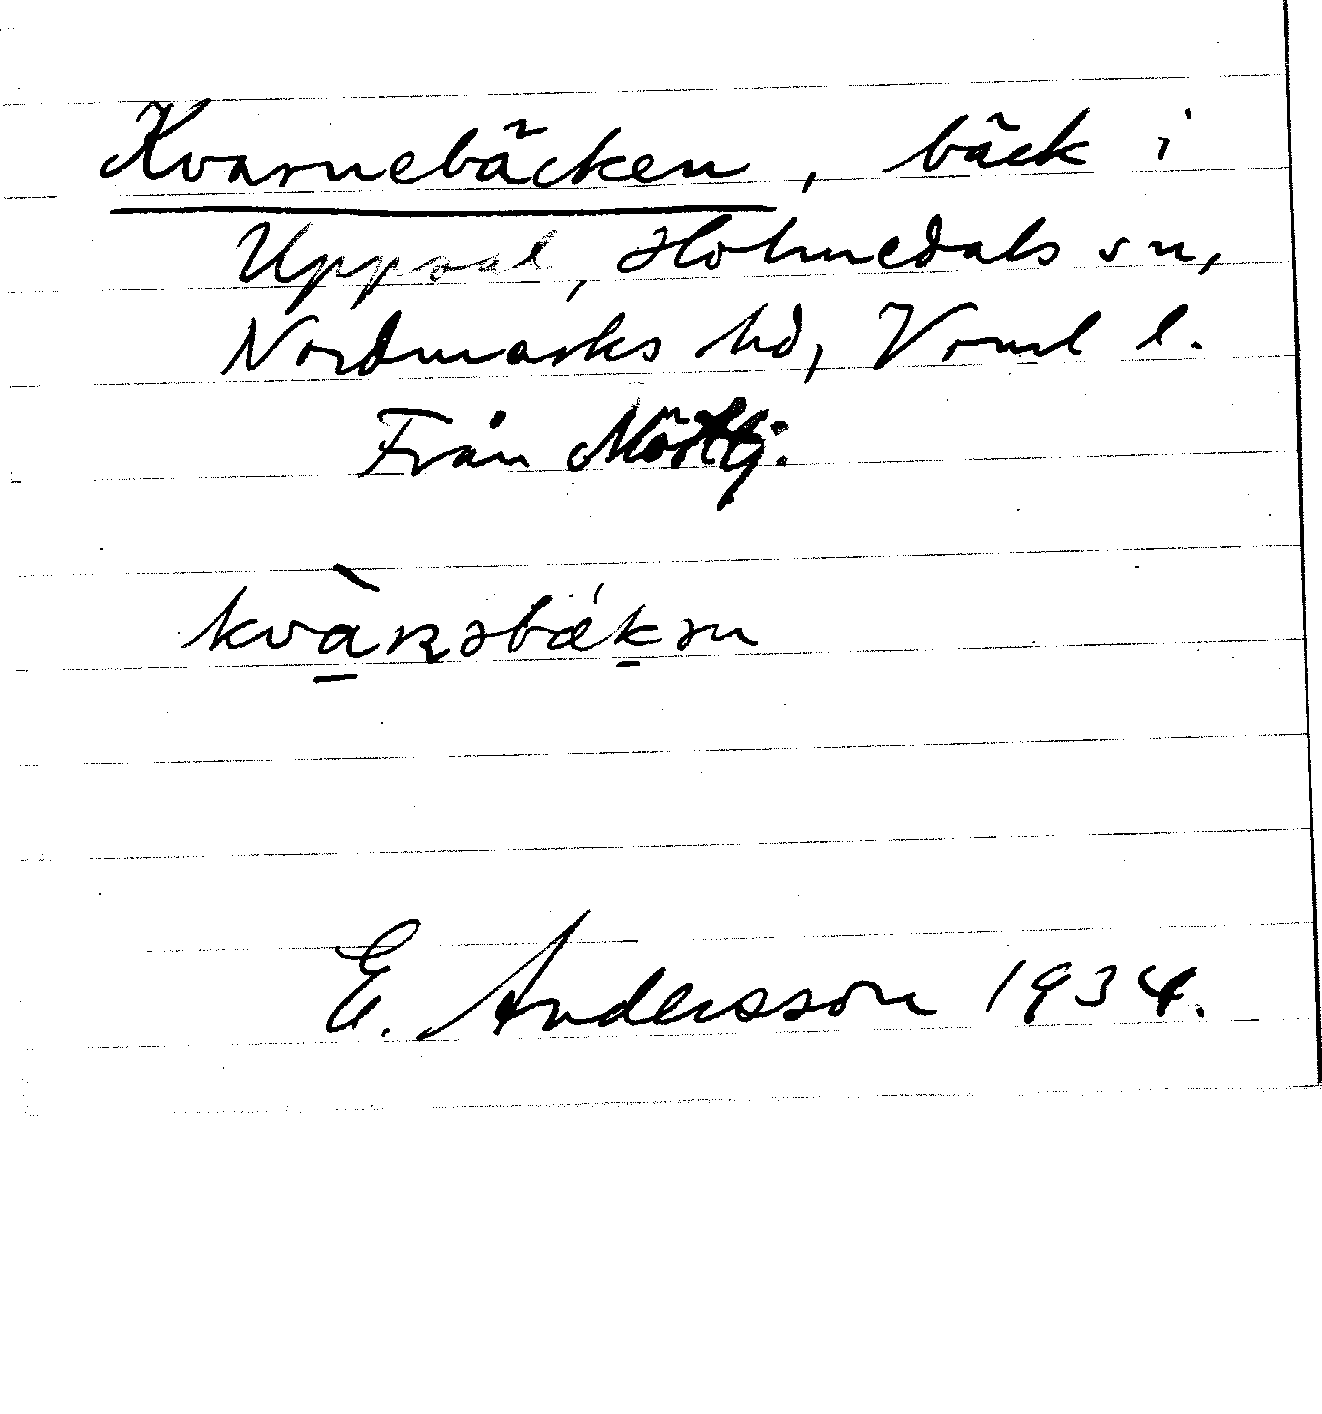 Kvarnebäcken, bäck i
Uppsal, Holmedals sn,
Nordmarks hd, Vrml l.
Från
kvàɳəbǽkən
E. Andersson 1934.